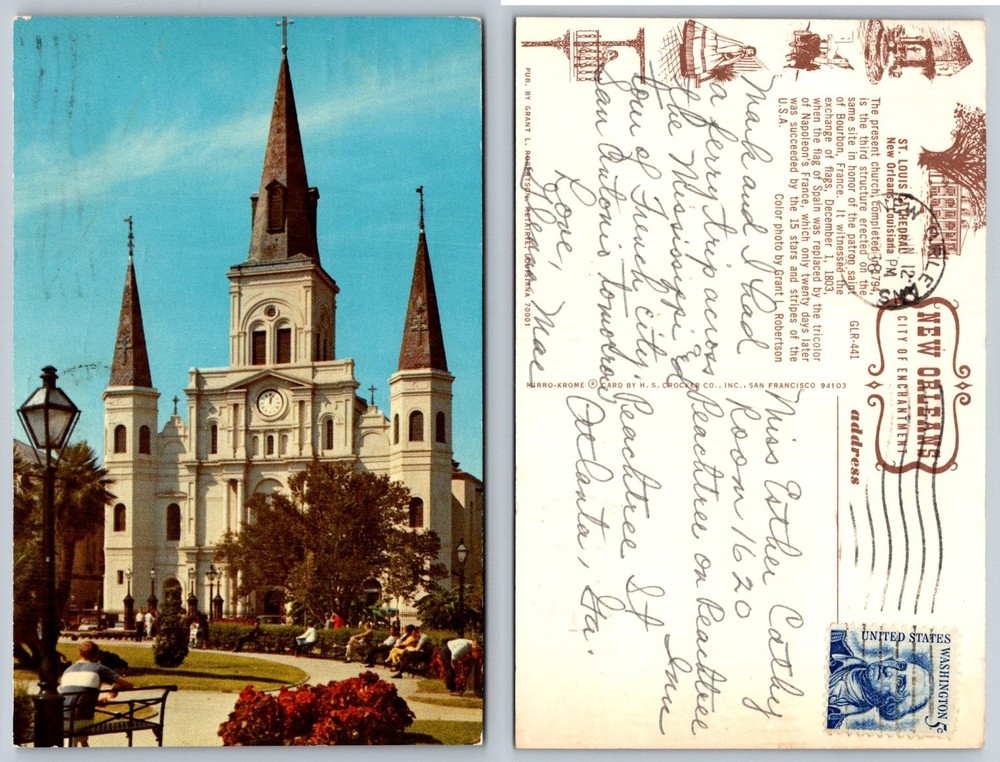 ST. LOUIS CATHEDRAL
New Orleans, Louisiana
The present church, completed in 1794,
is the third structure erected on the
same site in honor of the patron saint
of Bourbon, France. It witnessed the
exchange of flags, December 1, 1803,
when the flag of Spain was replaced by the tricolor
of Napoleon's France, which only twenty days later
was succeeded by the 15 stars and stripes of the
U.S.A.
Color photo by Grant L. Robertson
GLR-441
NEW ORLEANS
CITY OF ENCHANTMENT
address
PM
12
UNITED STATES
WASHINGTON 5c
Mark and I had
a ferry trip across
the Mississippi &
tour of French city.
San Antonio tomorrow
Love,
Miss Esther Cathy
Room 1620
Peachtree on Peachtree Inn
Peachtree St
Atlanta, Ga.
PUB. BY GRANT L. ROBERTSON, METAIRIE, LOUISIANA 70001
MIRRO-KROME ® CARD BY H. S. CROCKER CO., INC., SAN FRANCISCO 94103